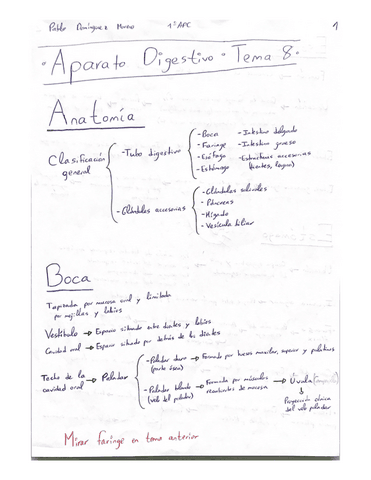 Pablo Domínguez Moreno 1º APC 1
· Aparato Digestivo · Tema 8 ·
Anatomía
Clasificación general
- Tubo digestivo
- Boca
- Faringe
- Esófago
- Estómago
- Intestino delgado
- Intestino grueso
- Estructuras accesorias
(dientes, lengua)
- Glándulas accesorias
- Glándulas salivales
- Páncreas
- Hígado
- Vesícula biliar
Boca
Tapizada por mucosa oral y limitada
por mejillas y labios
Vestíbulo → Espacio situado entre dientes y labios
Cavidad oral → Espacio situado por detrás de los dientes
Techo de la
cavidad oral → Paladar
- Paladar duro → Formado por huesos maxilar superior y palatinos
(parte ósea)
- Paladar blando → Formado por músculos → Úvula
(velo del paladar) recubiertos de mucosa
↓
Proyección cónica
del velo paladar
Mirar faringe en tema anterior